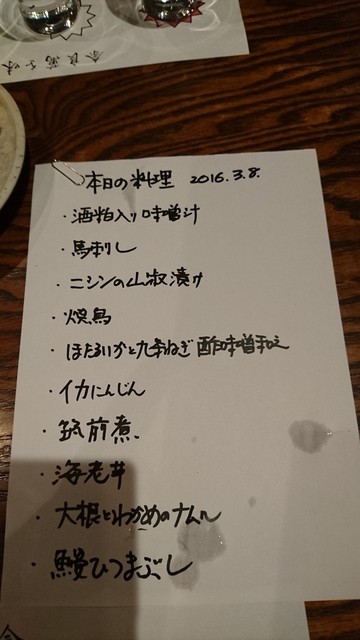 本日の料理 2016.3.8.
・酒粕入り味噌汁
・馬刺し
・ニシンの山椒漬け
・焼鳥
・ほたるいかと九条ねぎ酢味噌和え
・イカにんじん
・筑前煮
・海老丼
・大根とわかめのナムル
・鰻ひつまぶし